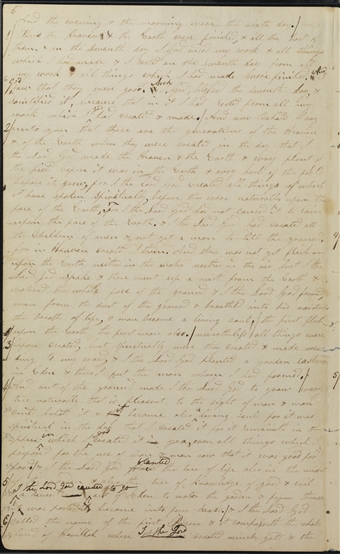 6
And the evening & the morning were the sixth day.
Thus the Heaven & the Earth were finished, & all the host of
them. & on the seventh day I God ended my work & all things
which I had made & I rested on the seventh day from all
my work & all things which I had made were finished And
I God saw that they were good. And I God blessed the seventh day &
sanctified it, because that in it I had rested from all my
work which I God created & made. And now behold I say
unto you that these are the generations of the Heaven
& of the Earth when they were created in the day that I
the Lord God made the Heaven & the Earth & every plant of
the field before it was in the Earth & every herb of the field
before it grew, for I the Lord God created all things of which
I have spoken spiritually before they were naturally upon the
face of the Earth, for I the Lord God had not caused it to rain
upon the face of the Earth, & I the Lord God had created all
the children of men & not yet a man to till the ground
for in Heaven created I them. And there was not yet flesh
upon the Earth neither in the water neither in the air but I the
Lord God spake & there went up a mist from the Earth &
watered the whole face of the ground & I the Lord God formed
man from the dust of the ground & breathed into his nostrils
the breath of life, & man became a living soul, the first flesh
upon the Earth the first man also. nevertheless all things were
before created, but spiritually were they created & made accor
ding to my word & I the Lord God planted a garden eastward
in Eden & there I put the man whom I had formed.
And out of the ground made I the Lord God to grow every
tree naturally that is pleasant to the sight of man & man
could behold it & it became also a living soul, for it was
spiritual in the day that I created it for it remaineth in the
sphere in which I God created it yea, even all things which I
prepared for the use of man & man saw that it was good for
food & I the Lord God planted the tree of life also in the midst
tree of knowledge of good & evil
I the Lord God caused
of Eden to water the garden & from thence
it was parted & became into four heads. I the Lord God
called the name of the first & it compasseth the whole
land of Havilah where I the Lord God created much gold & the